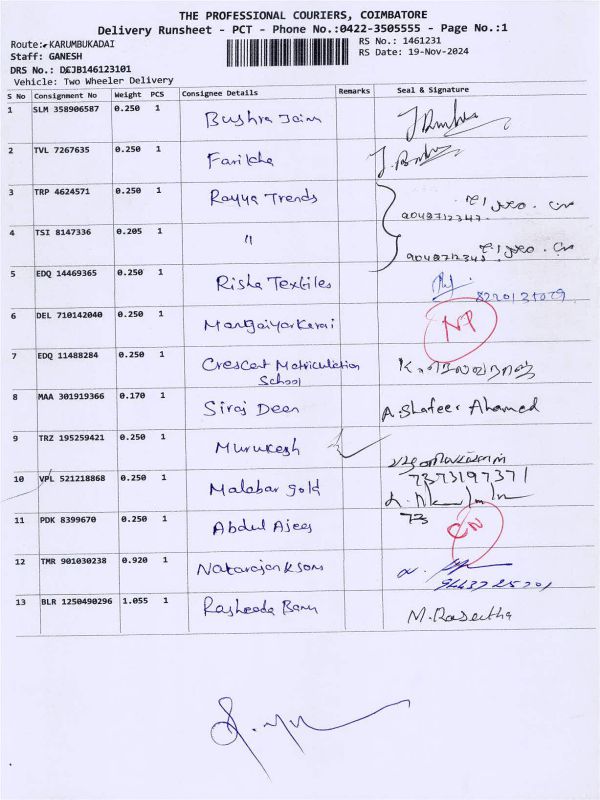 THE PROFESSIONAL COURIERS, COIMBATORE
Delivery Runsheet - PCT - Phone No.:0422-3505555 - Page No.:1
Route: KARUMBUKADAI
RS No.: 1461231
Staff: GANESH
RS Date: 19-Nov-2024
DRS No.: DEJB146123101
Vehicle: Two Wheeler Delivery
S No Consignment No Weight PCS Consignee Details Remarks Seal & Signature
1 SLM 358906587 0.250 1 Bushra Jain
2 TVL 7267635 0.250 1 Farikha
3 TRP 4624571 0.250 1 Rayya Trends
4 TSI 8147336 0.205 1 "
5 EDQ 14469365 0.250 1 Risha Textiles
6 DEL 710142040 0.250 1 Mangaiyarkarai NP
7 EDQ 11488284 0.250 1 Crescent Matriculation
School
8 MAA 301919366 0.170 1 Siraj Deen A. Shafeer Ahamed
9 TRZ 195259421 0.250 1 Murukesh
10 VPL 521218868 0.250 1 Malabar gold 7373197371
11 PDK 8399670 0.250 1 Abdul Ajees 73 CN
12 TMR 901030238 0.920 1 Natarajan k Sons
13 BLR 1250490296 1.055 1 Rasheeda Banu M. Raseetha